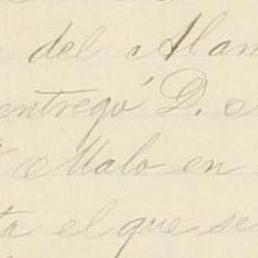 del Alam
entregó D.
Malo en
ta el que se